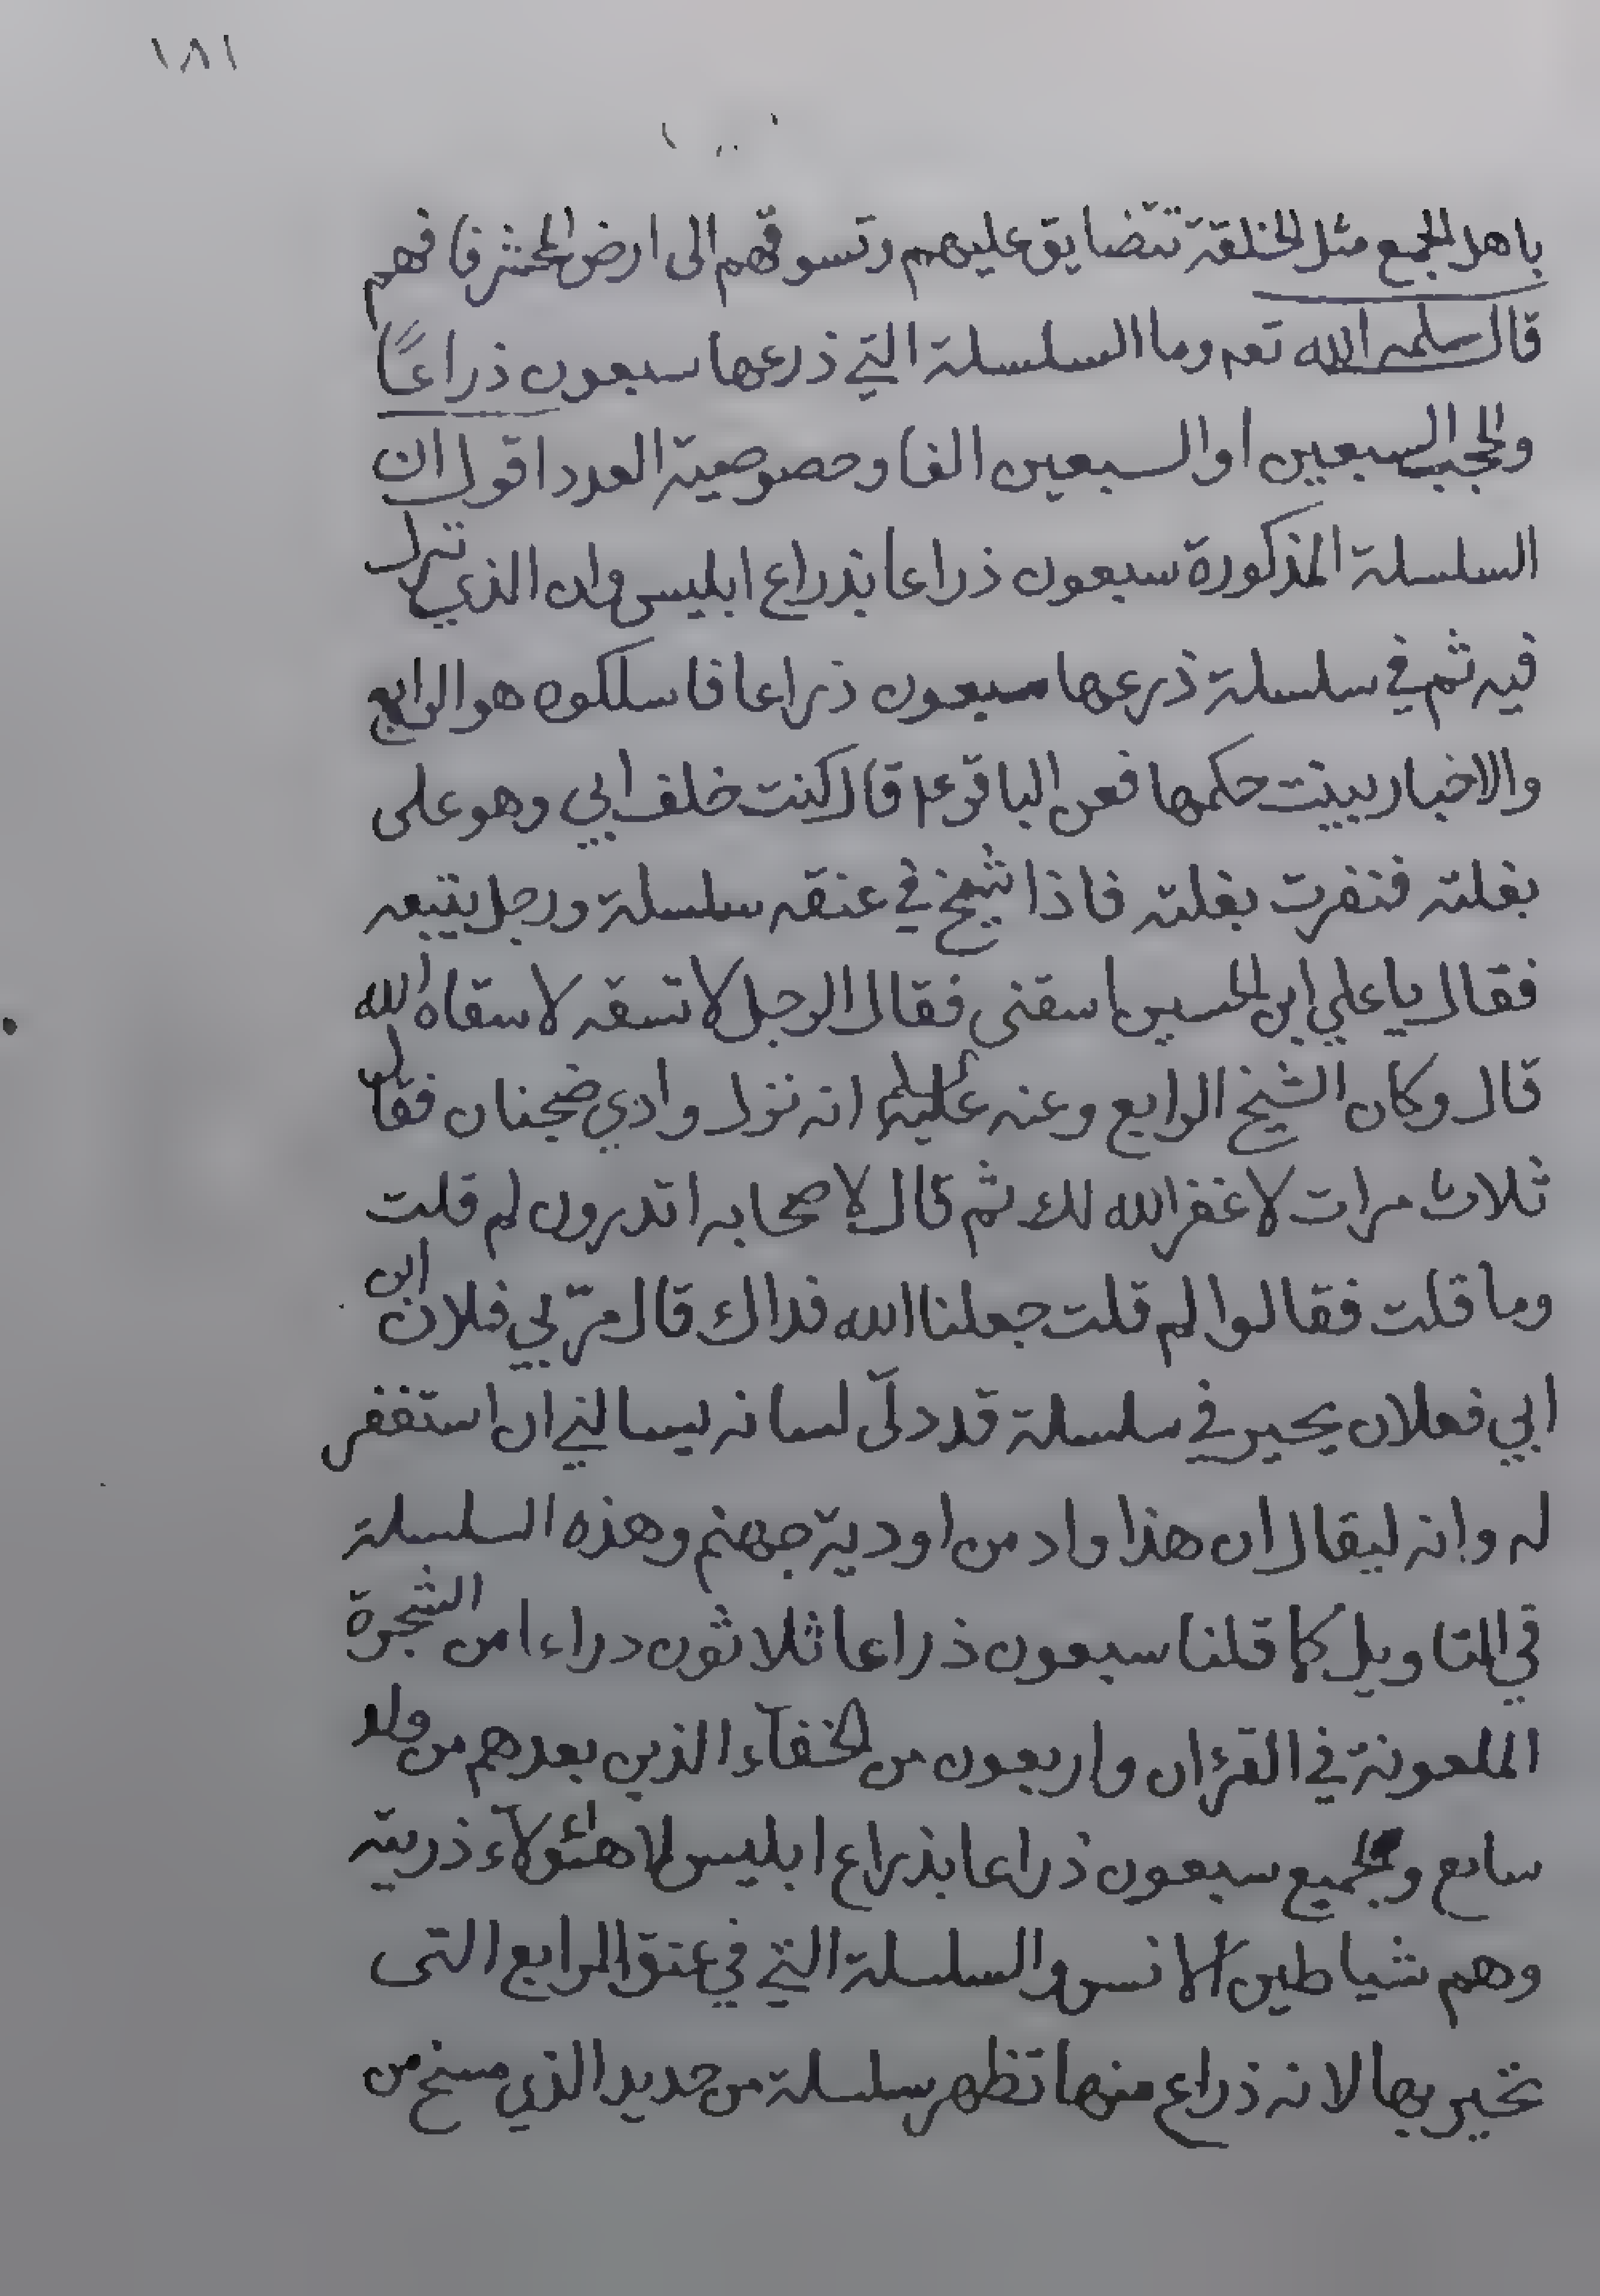 ١٨١
باهل الجمع مثل الحلقة تتضايق عليهم وتسوقهم الى ارض المحشر فافهم
قال سلمه الله تعه وما السلسلة التي ذرعها سبعون ذراعًا
والحجب السبعين او السبعين الفا وخصوصية العدد اقول ان
السلسلة المذكورة سبعون ذراعا بذراع ابليس وان الذي نزل
فيه ثم في سلسلة ذرعها سبعون ذراعا فاسلكوه هو الرابع
والاخبار بينت حكمها فعن الباقر ع قال كنت خلف ابي وهو على
بغلته فنفرت بغلته فاذا شيخ في عنقه سلسلة ورجل يتبعه
فقال يا علي ابن الحسين اسقنى فقال الرجل لا تسقه لا سقاه الله
قال وكان الشيخ الرابع وعنه عليه السلم انه نزل وادي ضجنان فقال
ثلاث مرات لا غفر الله لك ثم قال لاصحابه اتدرون لم قلت
وما قلت فقالوا لم قلت جعلنا الله فداك قال مرّ بي فلان ابن
ابي فعلان يحير في سلسلة قد دلّى لسانه يسالني ان استغفر
له وانه ليقال ان هذا واد من اودية جهنم وهذه السلسلة
في التاويل كما قلنا سبعون ذراعا ثلاثون دراعا من الشجرة
الملعونة في القرءان واربعون من الخفآء الذين بعدهم من ولد
سابع والجميع سبعون ذراعا بذراع ابليس لا هئولآء ذريته
وهم شياطين الانس والسلسلة التي في عنق الرابع التى
تخير بها لانه ذراع منها تظهر سلسلة من حديد الذي مسخ من